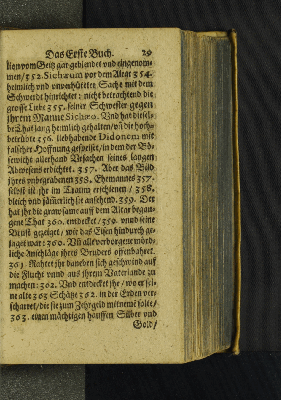 Das Erste Buch. 29
lien vom Geitz gar geblendet und eingenom-
men/ 352. Sichæum vor dem Altar 354.
heimlich und unverhüteter Sache mit dem
Schwerdt hinrichtet: nicht betrachtend die
grosse Liebe 355. seiner Schwester gegen
ihrem Manne Sichæo. Und hat diesel-
be That lang heimlich gehalten/ uñ die hoch-
betrübte 356. liebhabende Didonem mit
falscher Hoffnung gespeiset/ in dem der Bö-
sewicht allerhand Ursachen seines langen
Abwesens erdichtet. 357. Aber das Bild
ihres unbegrabenen 358. Ehemannes 357.
selbst ist ihr im Traum erschienen/ 358.
bleich und jämmerlich anzusehend. 359. Der
hat ihr die grausame auff dem Altar began-
gene That 360. entdecket/ 359. unnd seine
Brust gezeiget/ wie das Eisen hindurch ge-
jaget war: 360. Uñ all verborgene mörd-
liche Anschläge ihres Bruders offenbahret.
361. Rahtet ihr daneben sich geschwind auf
die Flucht unnd aus ihrem Vaterlande zu
machen: 362. Und entdecket ihr/ wo er sei-
ne alte 363 Schätze 362. in der Erden ver-
scharret/ die sie zum Zehrgeld mitnemẽ solte/
363. einen mächtigen hauffen Silber und
Gold/